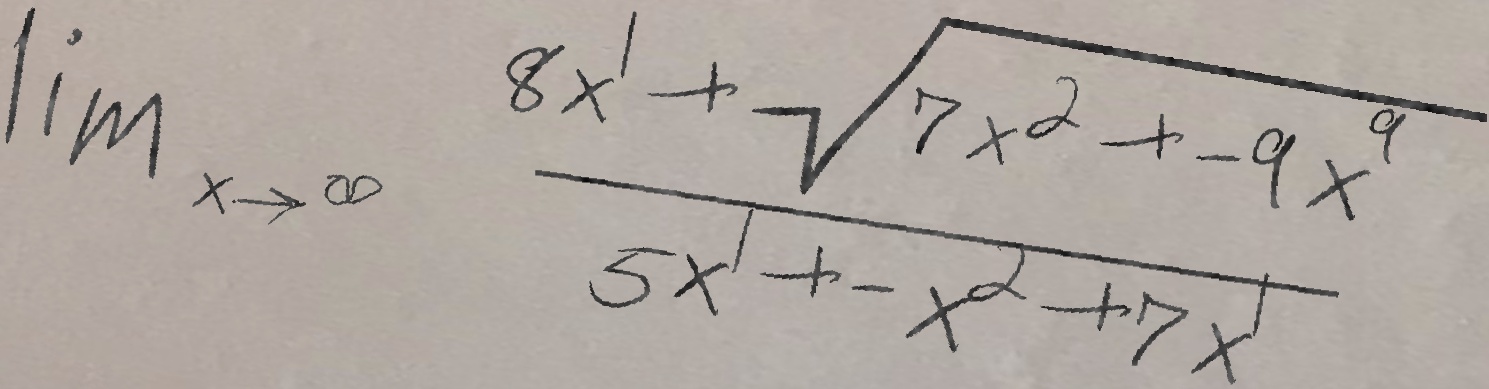 \lim_{x \to \infty} \frac{8x^1 + \sqrt{7x^2 + -9x^9}}{5x^1 + -x^2 + 7x^1}